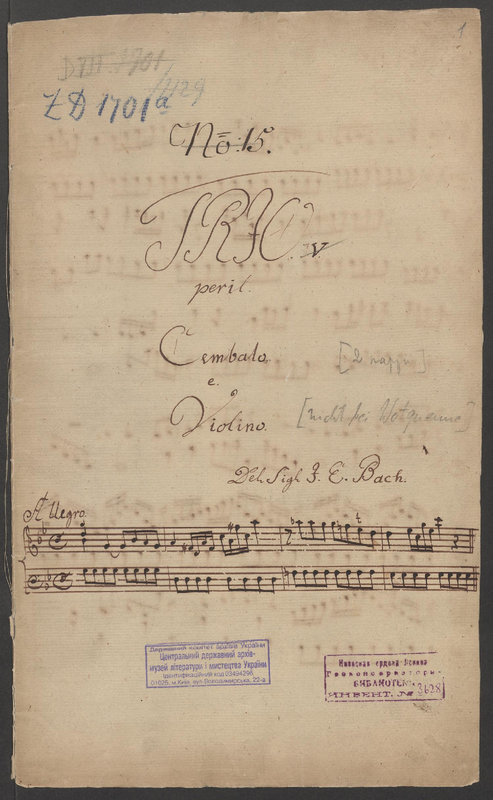 1
D VII 1701,
1429
ZD 1701a
No 15.
TRIO. V
per il
Cembalo.
e.
[2 карты]
Violino.
[nicht bei Wotquenne]
Del. Sigl. J. E. Bach.
Allegro.
Державний комітет архівів України
Центральний державний архів-
музей літератури і мистецтва України
Ідентифікаційний код 03494296
01025, м.Київ, вул.Володимирська, 22-а
Київская ордена Ленина
Госконсерватория
БИБЛИОТЕКА
ИНВЕНТ. №